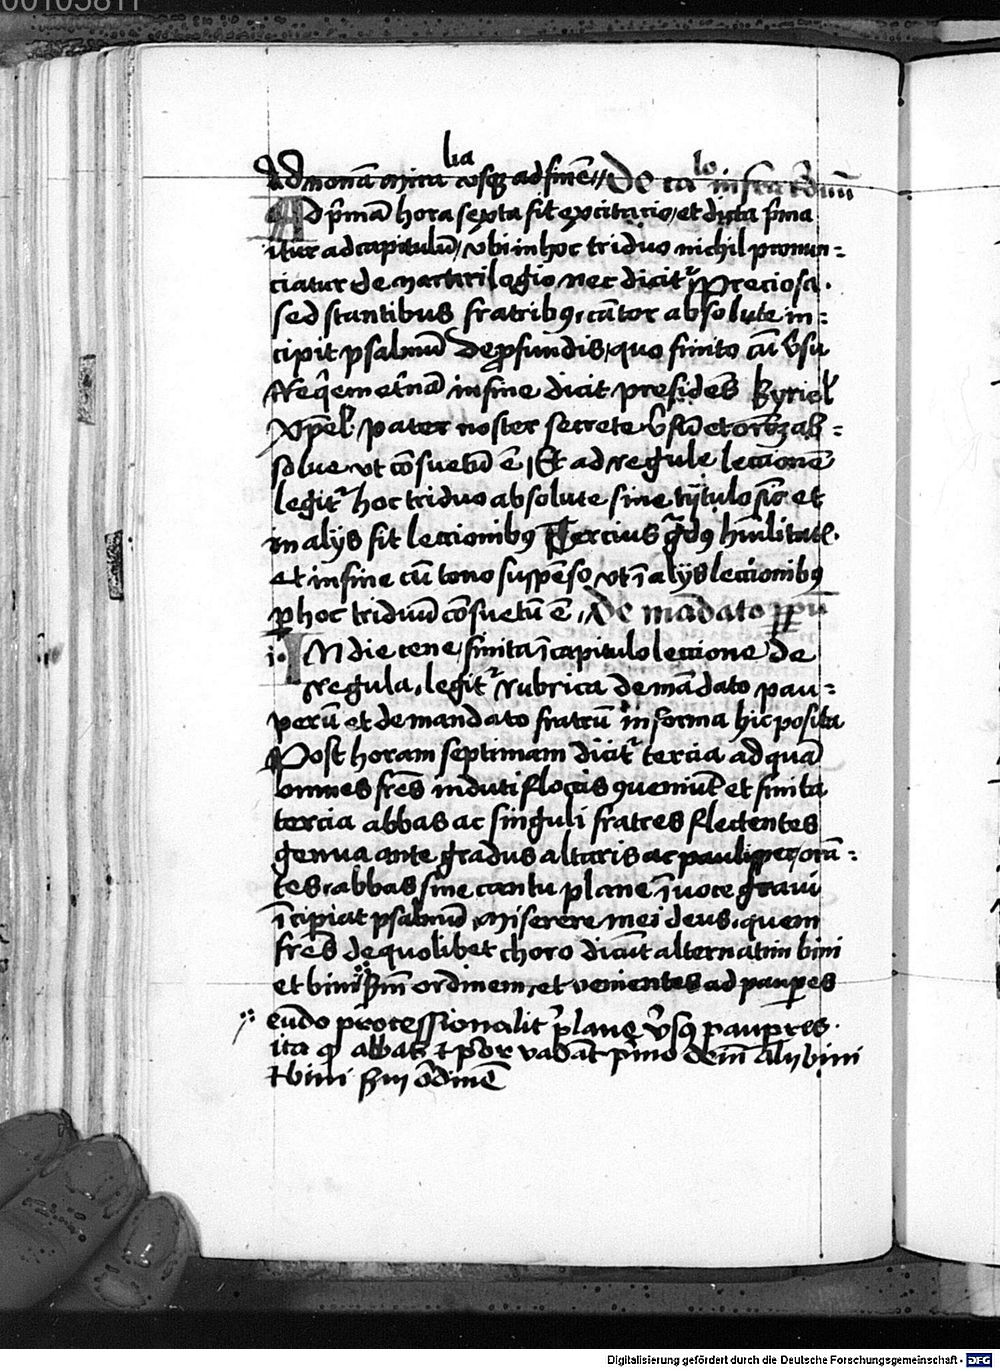 00105811
lia lo
Ad nonā mira cosqꝫ ad finē De ca infra tduū
Ad pͥmā hora sexta fit excitatio, et dicta pͥma
itur ad capitulū, vbi in hoc triduo nichil pronun=
ciatur de martirilogio, nec dicitͬ Preciosa.
sed stantibus fratribꝰ, cātor absolute in=
cipit psalmū De ꝓfundis, quo finito cū v̓su
Requiem et̓nā in fine dicit presidens Kyriel
Xp̄el. pater noster secrete ab=
solue vt cōsuetū ē, Et ad regule leccionē
legitͬ hoc triduo absolute sine tytulo sic et
in alys fit leccionibꝰ Tercius g̓dꝰ hūilitatꝭ.
et in fine cū tono suspenso, vt ī alys leccionibꝰ
ꝑ hoc triduū cōsuetū ē, De mādato ꝑpuū
i. IN die cene, finita ī capitulo leccione de
Regula, legitͬ rubrica de mādato pau=
perū et de mandato fratrū in forma hic posita
Post horam septimam dicitͬ tercia ad quā
omnes fr̄es induti floccis ꝯueniūt et finita
tercia abbas ac singuli fratres flectentes
genua ante gradus altaris ac pauliꝑ, orā=
tes, abbas sine cantu plane ī voce graui
īcipiat psalmū, Miserere mei deus, quem
fr̄es de quolibet choro dicāt alternatim bini
et bini Sm̄ ordinem, et venientes ad pauꝑes
eūdo processionalitͬ plane v̓sqꝫ pauperes.
ita ꝙ abbas et pͥor vadāt pͥmo Deīn alij bini
et bini Sm̄ ordinē
Digitalisierung gefördert durch die Deutsche Forschungsgemeinschaft - DFG